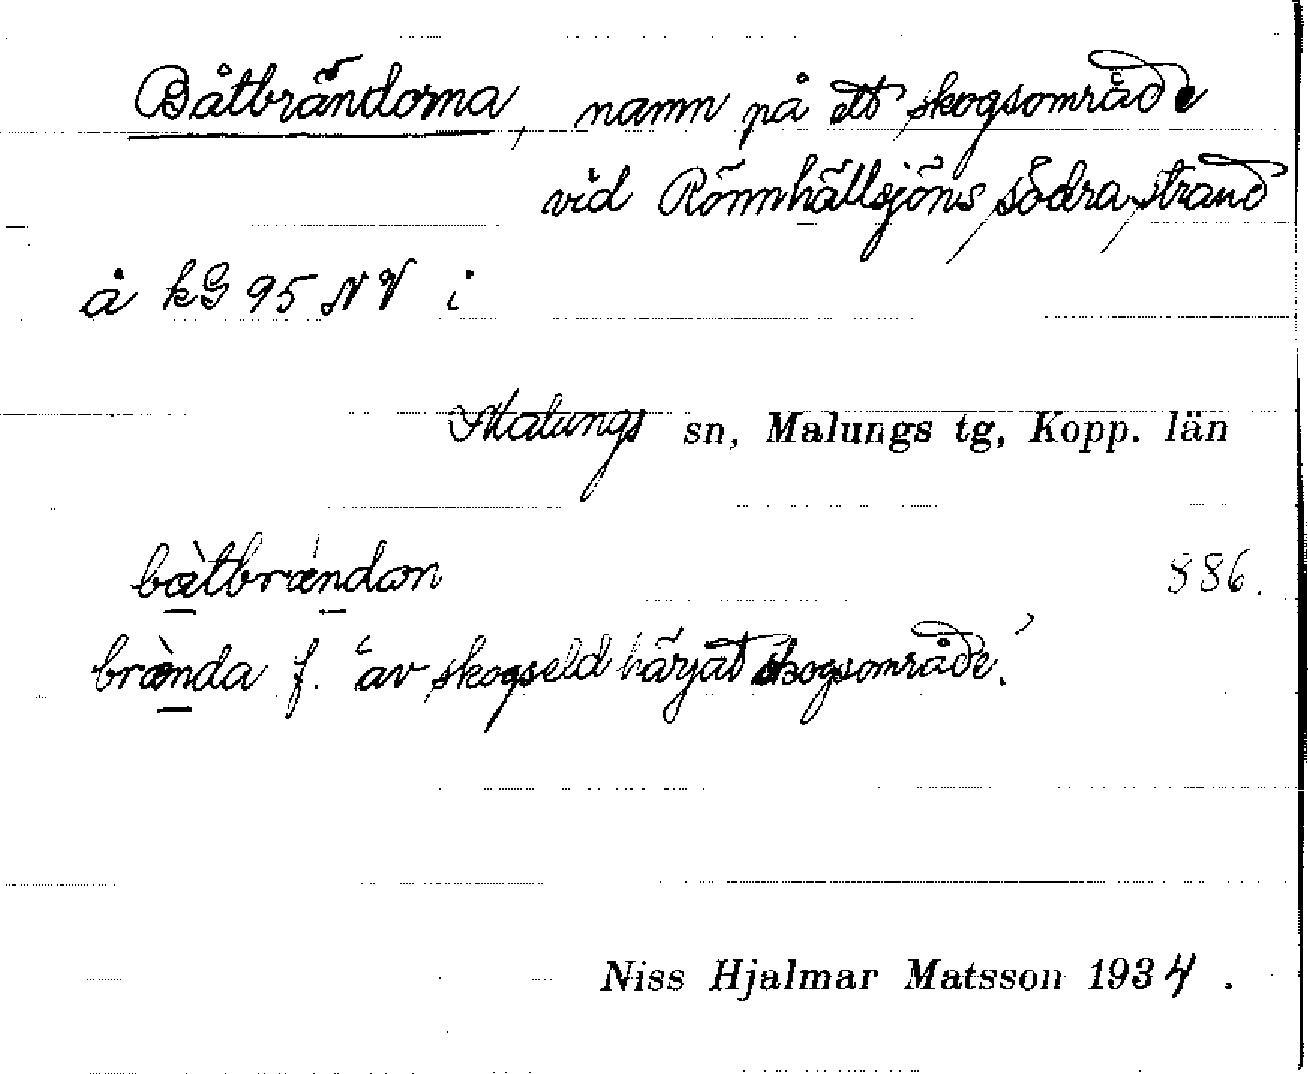 Båtbrändorna, namn på ett skogsområde
vid Rönnhällsjöns södra strand
å kG 95 NV i
Malungs sn, Malungs tg, Kopp. län
bàtbrándan 886.
brànda f. "av skogseld härjat skogsområde."
Niss Hjalmar Matsson 1934.